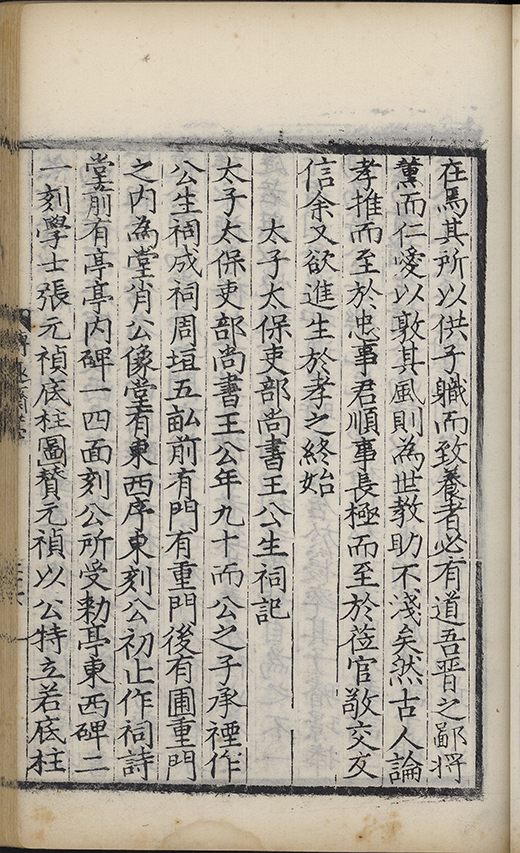 在焉其所以供子職而致養者必有道吾晉之鄙將
薰而仁愛以敦其風則為世教助不淺矣然古人論
孝推而至於忠事君順事長極而至於蒞官敬交友
信余又欲進生於孝之終始
太子太保吏部尚書王公生祠記
太子太保吏部尚書王公年九十而公之子承禋作
公生祠成祠周垣五畆前有門有重門後有圃重門
之内為堂肖公像堂有東西序東刻公初止作祠詩
堂前有亭亭内碑一四面刻公所受勑亭東西碑二
一刻學士張元禎底柱圖贊元禎以公特立若底柱